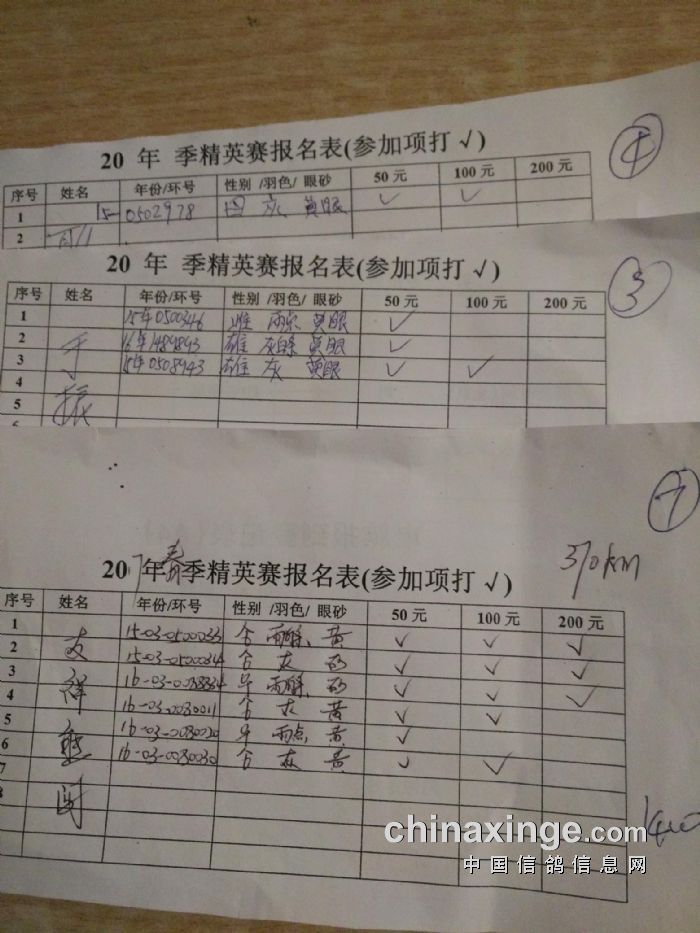 20 年 季精英赛报名表(参加项打 √)
④
序号 姓名 年份/环号 性别 /羽色/ 眼砂 50 元 100 元 200 元
1 15-0502978 灰 黄眼 √ √
2
20 年 季精英赛报名表(参加项打 √)
③
序号 姓名 年份/环号 性别 /羽色/ 眼砂 50 元 100 元 200 元
1 15年0500346 雌 雨点 黄眼 √
2 于 16年1489893 雄 灰白条 黄眼 √
3 15年0508943 雄 灰 黄眼 √ √
4 振
5
6
370km
207年春季精英赛报名表(参加项打 √)
序号 姓名 年份/环号 性别 /羽色/ 眼砂 50 元 100 元 200 元
1 15-03-0500033 黄 √ √ √
2 友 15-03-0500034 灰 砂 √ √ √
3 祥 砂 √ √ √
4 16-03-0080011 灰 黄 √ √
5 雨点 黄 √
6 16-03-0080030 灰 黄 √ √
7
8
chinaxinge.com
中国信鸽信息网